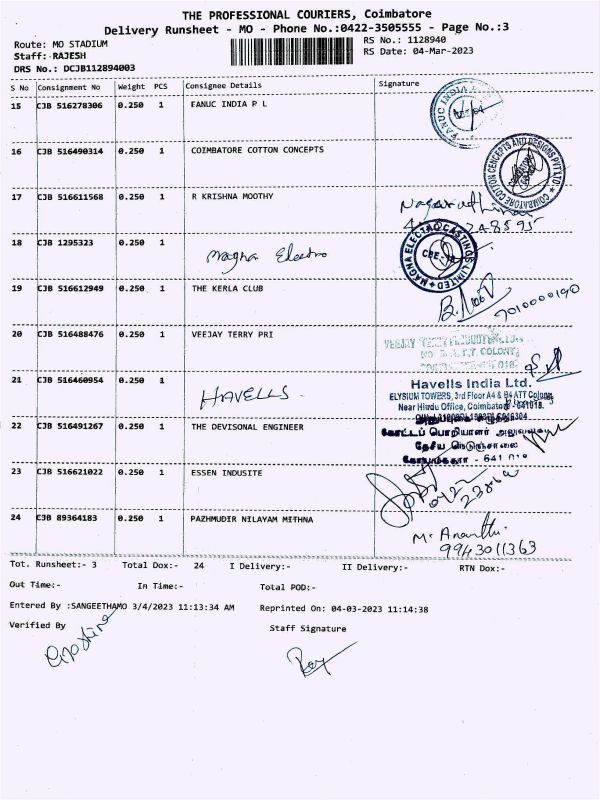 THE PROFESSIONAL COURIERS, Coimbatore
Delivery Runsheet - MO - Phone No.:0422-3505555 - Page No.:3
Route: MO STADIUM
Staff: RAJESH
DRS No.: DCJB112894003
RS No.: 1128940
RS Date: 04-Mar-2023
S No Consignment No Weight PCS Consignee Details Signature
15 CJB 516278306 0.250 1 EANUC INDIA P L
FANUC INDIA
16 CJB 516490314 0.250 1 COIMBATORE COTTON CONCEPTS
COIMBATORE COTTON CONCEPTS AND DESIGNS PVT LTD
17 CJB 516611568 0.250 1 R KRISHNA MOOTHY
248595
18 CJB 1295323 0.250 1 Magna Electro
MAGNA ELECTRO CASTINGS LIMITED
CBE - 18
19 CJB 516612949 0.250 1 THE KERLA CLUB
9010000190
20 CJB 516488476 0.250 1 VEEJAY TERRY PRI
VEEJAY
COLONY
21 CJB 516460954 0.250 1 HAVELLS
Havells India Ltd.
ELYSIUM TOWERS, 3rd Floor A4 & B4 ATT Colony,
Near Hindu Office, Coimbatore - 641018.
22 CJB 516491267 0.250 1 THE DEVISONAL ENGINEER
கோட்டப் பொறியாளர் அலுவலகம்
தேசிய நெடுஞ்சாலை
- 641 018
23 CJB 516621022 0.250 1 ESSEN INDUSITE
24 CJB 89364183 0.250 1 PAZHMUDIR NILAYAM MITHNA
M. Ananthi
9943011363
Tot. Runsheet:- 3 Total Dox:- 24 I Delivery:- II Delivery:- RTN Dox:-
Out Time:- In Time:- Total POD:-
Entered By :SANGEETHAMO 3/4/2023 11:13:34 AM Reprinted On: 04-03-2023 11:14:38
Verified By Staff Signature